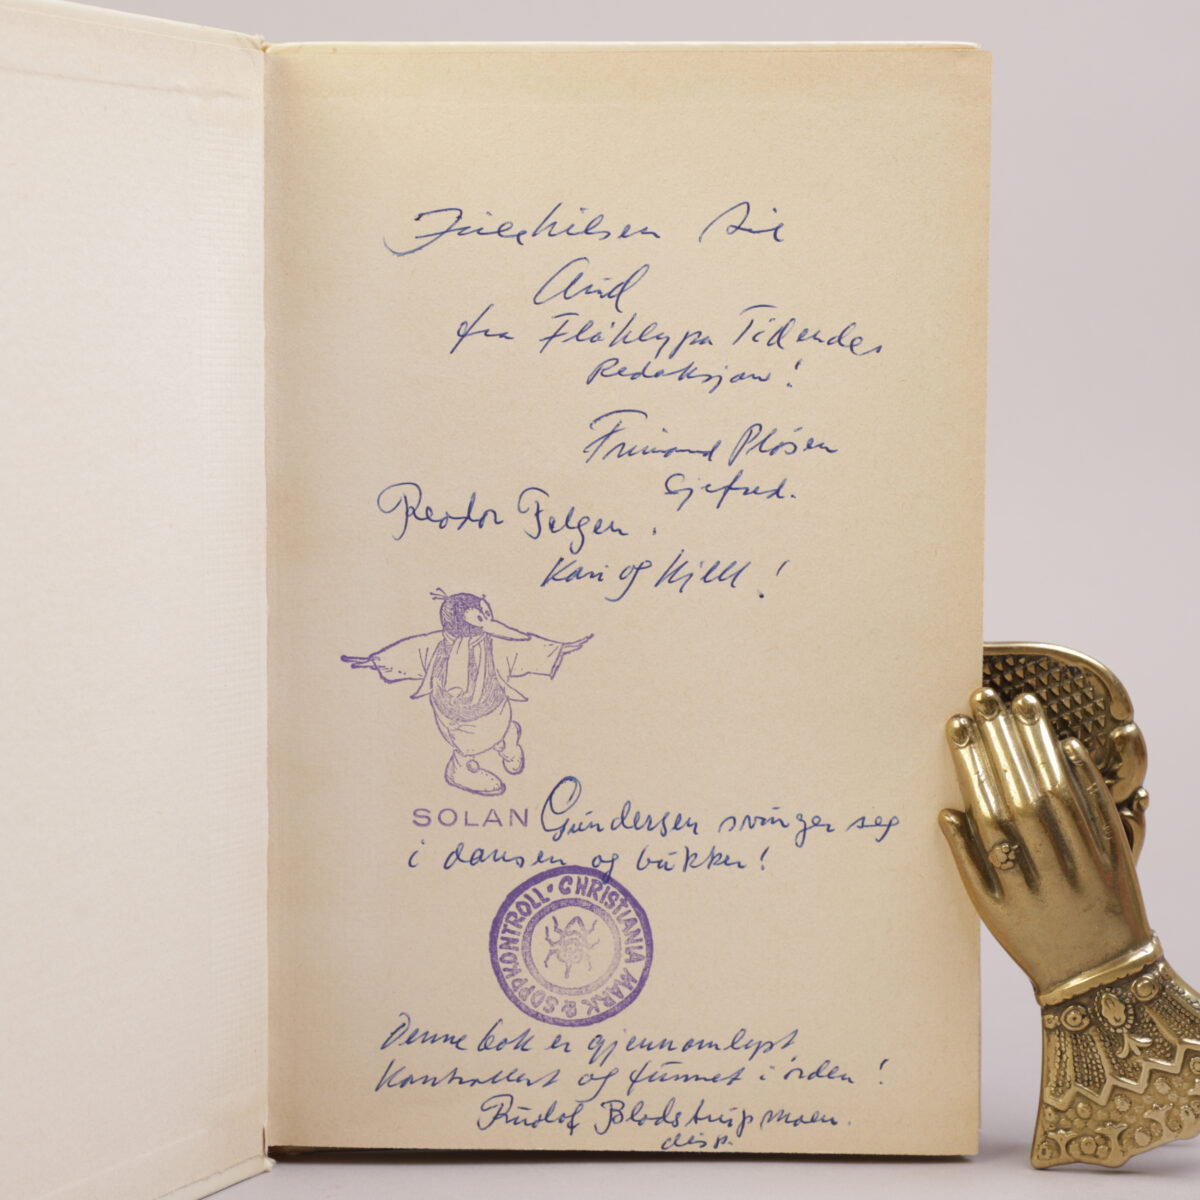 Julehilsen til
Arid
fra Flåklypa Tidendes
Redaksjon!
Frimand Pløsen
Sjefred.
Reodor Felgen.
Kari og Kjell!
SOLAN Gundersen svinger seg
i dansen og bukker!
SOPPKONTROLL · CHRISTIANIA MARK &
Denne bok er gjennomlyst
kontrollert og funnet i orden!
Rudolf Blodstrupmoen.
disp.